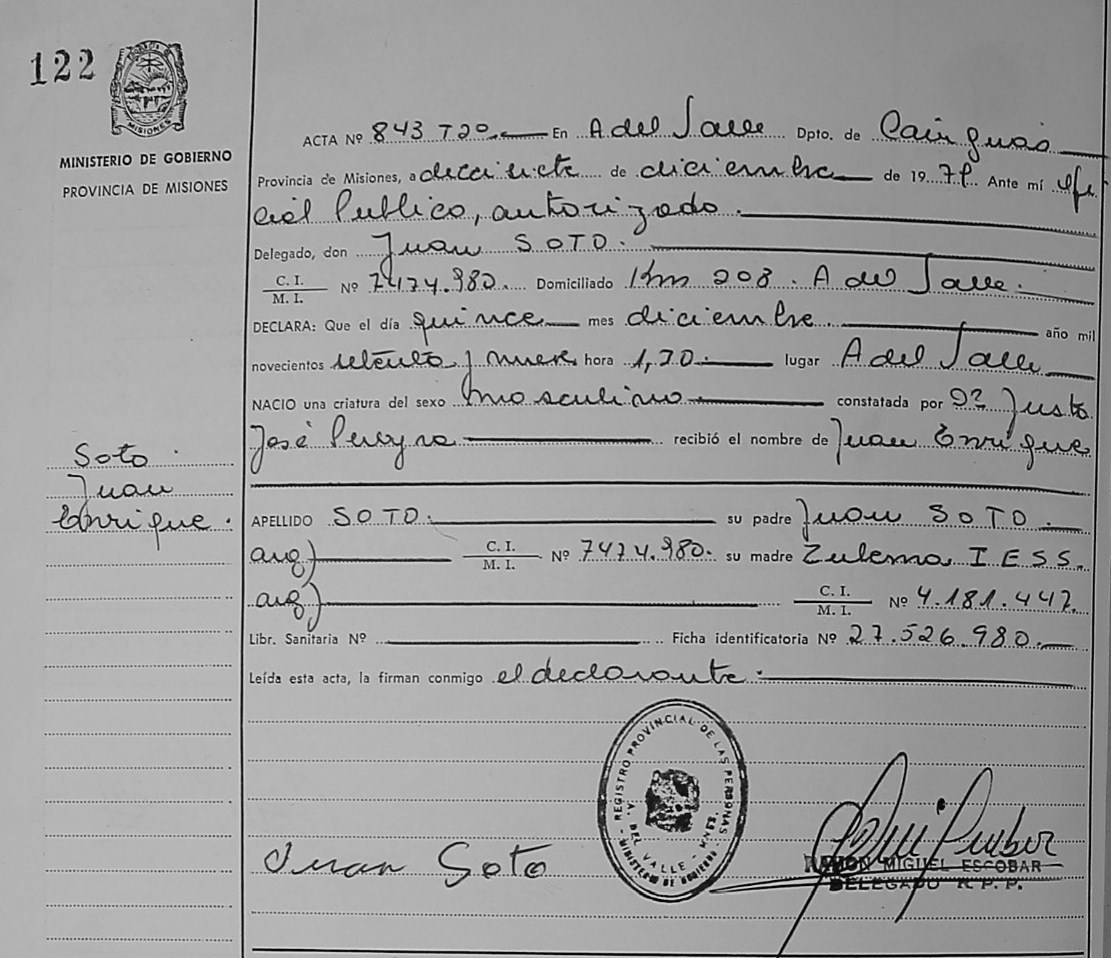 122
MISIONES
MINISTERIO DE GOBIERNO
PROVINCIA DE MISIONES
ACTA Nº 843 T2º. En A del Valle Dpto. de Cainguas
Provincia de Misiones, a diecisiete de diciembre de 19 79. Ante mí ofi
cial Publico, autorizado.
Delegado, don Juan SOTO.
C. I.
M. I. Nº 7474.980. Domiciliado Km 208. A del Valle.
DECLARA: Que el día quince mes diciembre año mil
novecientos setenta y nueve hora 1,30. lugar A del Valle
NACIO una criatura del sexo masculino constatada por Justo
José Pereyra recibió el nombre de Juan Enrique
Soto
Juan
Enrique.
APELLIDO SOTO. su padre Juan SOTO.
arg) C. I.
M. I. Nº 7474.980. su madre Zulema IESS.
arg) C. I.
M. I. Nº 4.181.447.
Libr. Sanitaria Nº Ficha identificatoria Nº 27.526.980.
Leída esta acta, la firman conmigo el declarante.
REGISTRO PROVINCIAL DE LAS PERSONAS
A. DEL VALLE - MNES.
MINISTERIO DE GOBIERNO
Juan Soto
RAMON MIGUEL ESCOBAR
DELEGADO R. P. P.